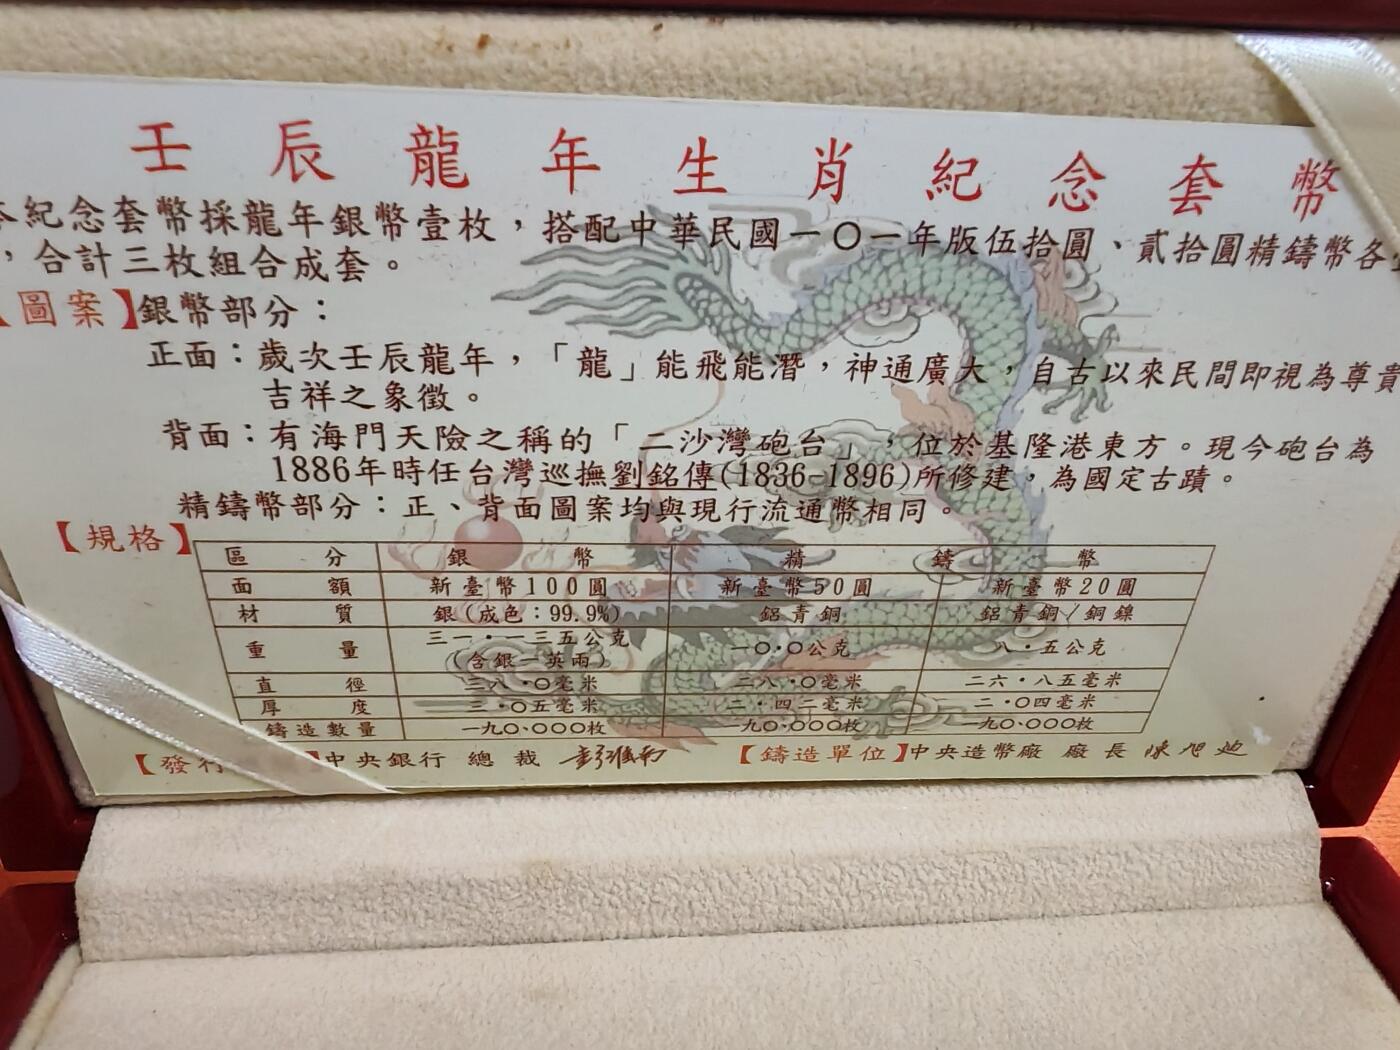 壬辰龍年生肖紀念套幣
本紀念套幣採龍年銀幣壹枚，搭配中華民國一〇一年版伍拾圓、貳拾圓精鑄幣各
，合計三枚組合成套。
【圖案】銀幣部分：
正面：歲次壬辰龍年，「龍」能飛能潛，神通廣大，自古以來民間即視為尊貴
吉祥之象徵。
背面：有海門天險之稱的「二沙灣砲台」，位於基隆港東方。現今砲台為
1886年時任台灣巡撫劉銘傳(1836-1896)所修建，為國定古蹟。
精鑄幣部分：正、背面圖案均與現行流通幣相同。
【規格】
區分 銀幣 精鑄幣
面額 新臺幣100圓 新臺幣50圓 新臺幣20圓
材質 銀(成色：99.9%) 鋁青銅 鋁青銅/銅鎳
重量 三一．一三五公克（含銀一英兩） 一〇．〇公克 八．五公克
直徑 三八．〇毫米 二八．〇毫米 二六．八五毫米
厚度 三．〇五毫米 二．四二毫米 二．〇四毫米
鑄造數量 一九〇、〇〇〇枚 一九〇、〇〇〇枚 一九〇、〇〇〇枚
【發行 】中央銀行 總裁 彭淮南 【鑄造單位】中央造幣廠 廠長 陳旭迪